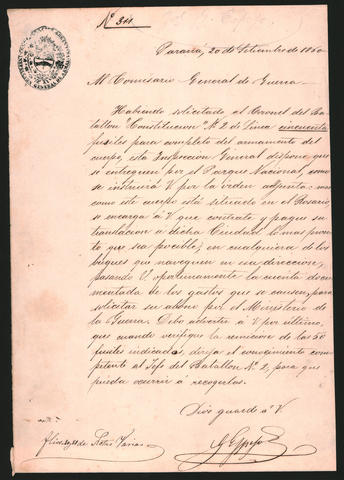 Nº 311.
Paraná, 20 de Setiembre de 1860
Al Comisario General de Guerra
Habiendo solicitado el Coronel del Ba-
tallon "Constitucion" Nº 2 de Linea cincuenta
fusiles para completo del armamento de
cuerpo, esta Inspeccion General dispone que
se entreguen por el Parque Nacional, como
se instruirá V por la orden adjunta: mas
como este cuerpo está situado en el Rosario,
se encarga á V que contrate y pague su
translacion a dicha Ciudad lo mas pron-
to que sea posible, en cualquiera de los
buques que naveguen en esa direccion,
pasando V. oportunamente la cuenta docu-
mentada de los gastos que se causen, para
solicitar su abono por el Ministerio de
la Guerra. Debo advertir á V por ultimo,
que cuando verifique la remicion de los 50
fusiles indicados, dirija el conocimiento com-
petente al Jefe del Batallon Nº 2, para que
pueda ocurrir á recogerlos.
Dios guarde á V.
de Notas Varias